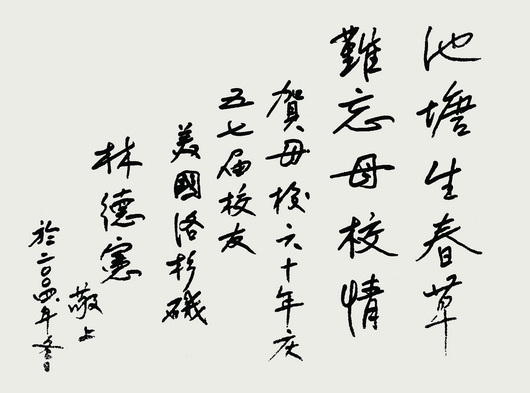 池塘生春草
難忘母校情
賀母校六十年庆
五七届校友
美國洛杉磯
林德憲
敬上
於二〇〇四年冬日